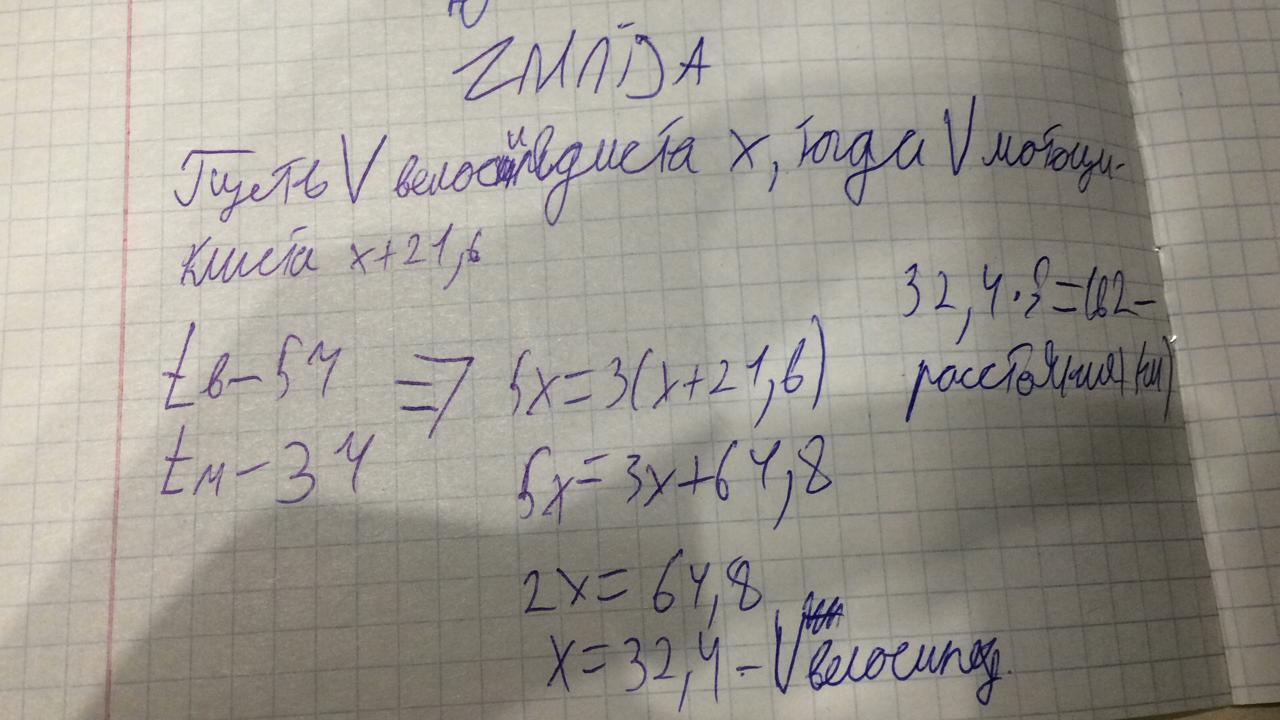 ZMADA
Пусть V велосипедиста x, тогда V мотоци-
клиста x+21,6
tв – 5ч => 5x=3(x+21,6)
tм – 3ч
5x=3x+64,8
2x=64,8
x=32,4 – V велосипед.
32,4·5=162–
расстояния (км)